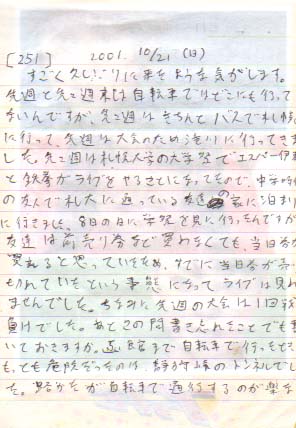 [251] 2001. 10/21 (日)
すごく久しぶりに来たような気がします。
先週と先々週末は自転車ではどこにも行って
ないんですが、先々週はきちんとバスで札幌
に行って、先週は大会のため滝川に行ってきま
した。先々週は札幌大学の大学祭でエスパー伊東
と鉄拳がライブをやるとことになってるので、中学時代
の友人で札大に通っている友達の家に泊まり
に行きました。8日の日に学祭を見に行ったんですが
友達は前売り券など買わなくても、当日券が
買えると思っていたため、すでに当日券が売り
切れていたという事態になってライブは見れ
ませんでした。ちなみに先週の大会は1回戦
負けでした。あとこの間書き忘れたことでも書
いておきますか。函館まで自転車で行ったとき
もっとも危険だったのは、静狩峠のトンネルでし
た。路かたが自転車で通行するのが楽な